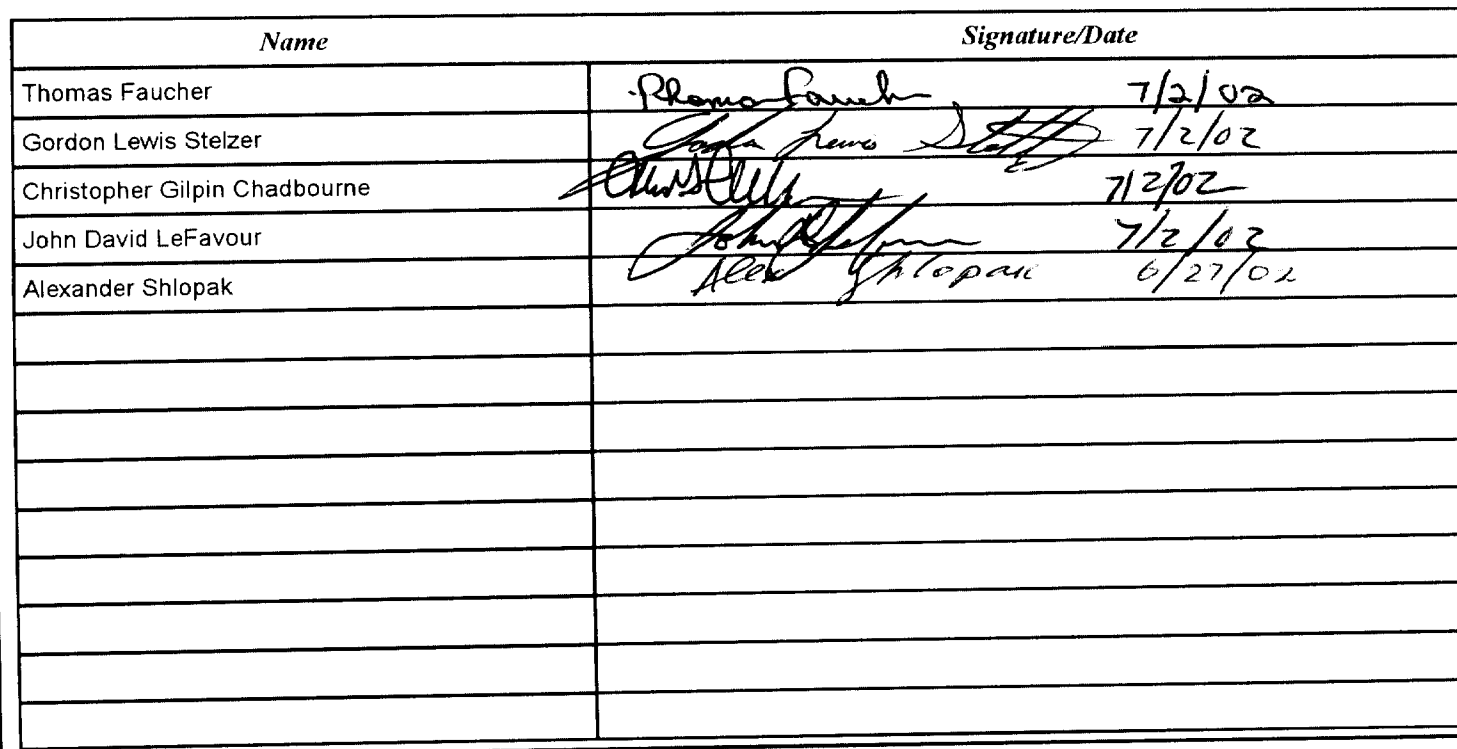 Name Signature/Date
Thomas Faucher Thomas Faucher 7/2/02
Gordon Lewis Stelzer Gordon Lewis 7/2/02
Christopher Gilpin Chadbourne 7/2/02
John David LeFavour John 7/2/02
Alexander Shlopak Alex Shlopak 6/27/02